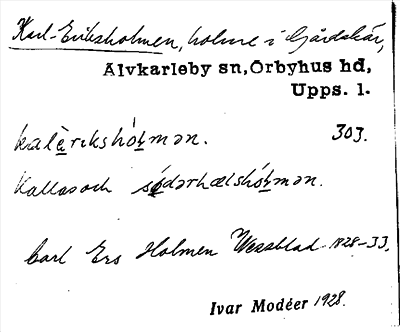 Karl-Eriksholmen, holme i Gårdskär,
Älvkarleby sn, Örbyhus hd,
Upps. l.
kalèrikshó̱lmən. 303.
Kallas och södərhælshó̱lmən.
Carl Ers Holmen Wessblad 1828-33.
Ivar Modéer 1928.